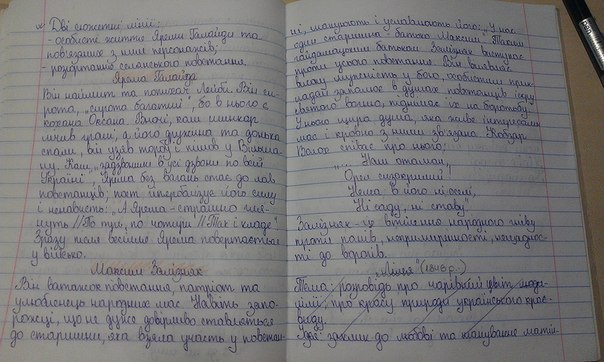 Дві сюжетні лінії:
- особисте життя Яреми Галайди та
пов'язаних з ним персонажів;
- розгортання селянського повстання.
Ярема Галайда
Він наймит та попихач Лейби. Він си-
рота, "сирота багатий", бо в нього є
кохана Оксана. Вночі, коли шинкар
лічив гроші, а його дружина та донька
спали, він узяв торбу і пішов у Вільша-
ну. Коли "задзвонили в усі дзвони по всій
Україні", Ярема без вагань стає до лав
повстанців; поет гіперболізує його силу
і ненависть: "А Ярема - страшно гля-
нуть // По три, по чотири // Так і кладе".
Зразу після весілля Ярема повертається
у військо.
Максим Залізняк
Він ватажок повстання, патріот та
улюбленець народних мас. Навіть запо-
рожці, що не дуже довірливо ставляться
до старшини, яка взяла участь у повстан-
ні, шанують і уславлюють його: "У нас
один старшина - батько Максим". Таким
гайдамацьким батьком Залізняк виступає
протягом усього повстання. Він виявляє
велику мужність у бою, особистим прик-
ладом запалює в душах повстанців іскру
святого вогню, піднімає їх на боротьбу.
У нього щира душа, яка живе інтересами
мас і кровно з ними зв'язана. Кобзар
Волох співає про нього:
"... Наш отаман,
Орел сизокрилий!
Нема в його ні оселі,
Ні саду, ні ставу"
Залізняк - це втілення народного гніву
проти панів, непримиренності, нещаднос-
ті до ворогів.
"Лілея" (1846р.)
Тема: розповідь про чарівний цвіт
лілії, про красу природи українського краю
Ідея: заклик до любові та шанування